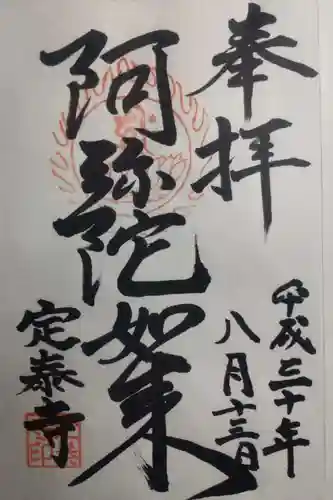 奉拝
平成三十年
八月十三日
阿弥陀如来
定泰寺